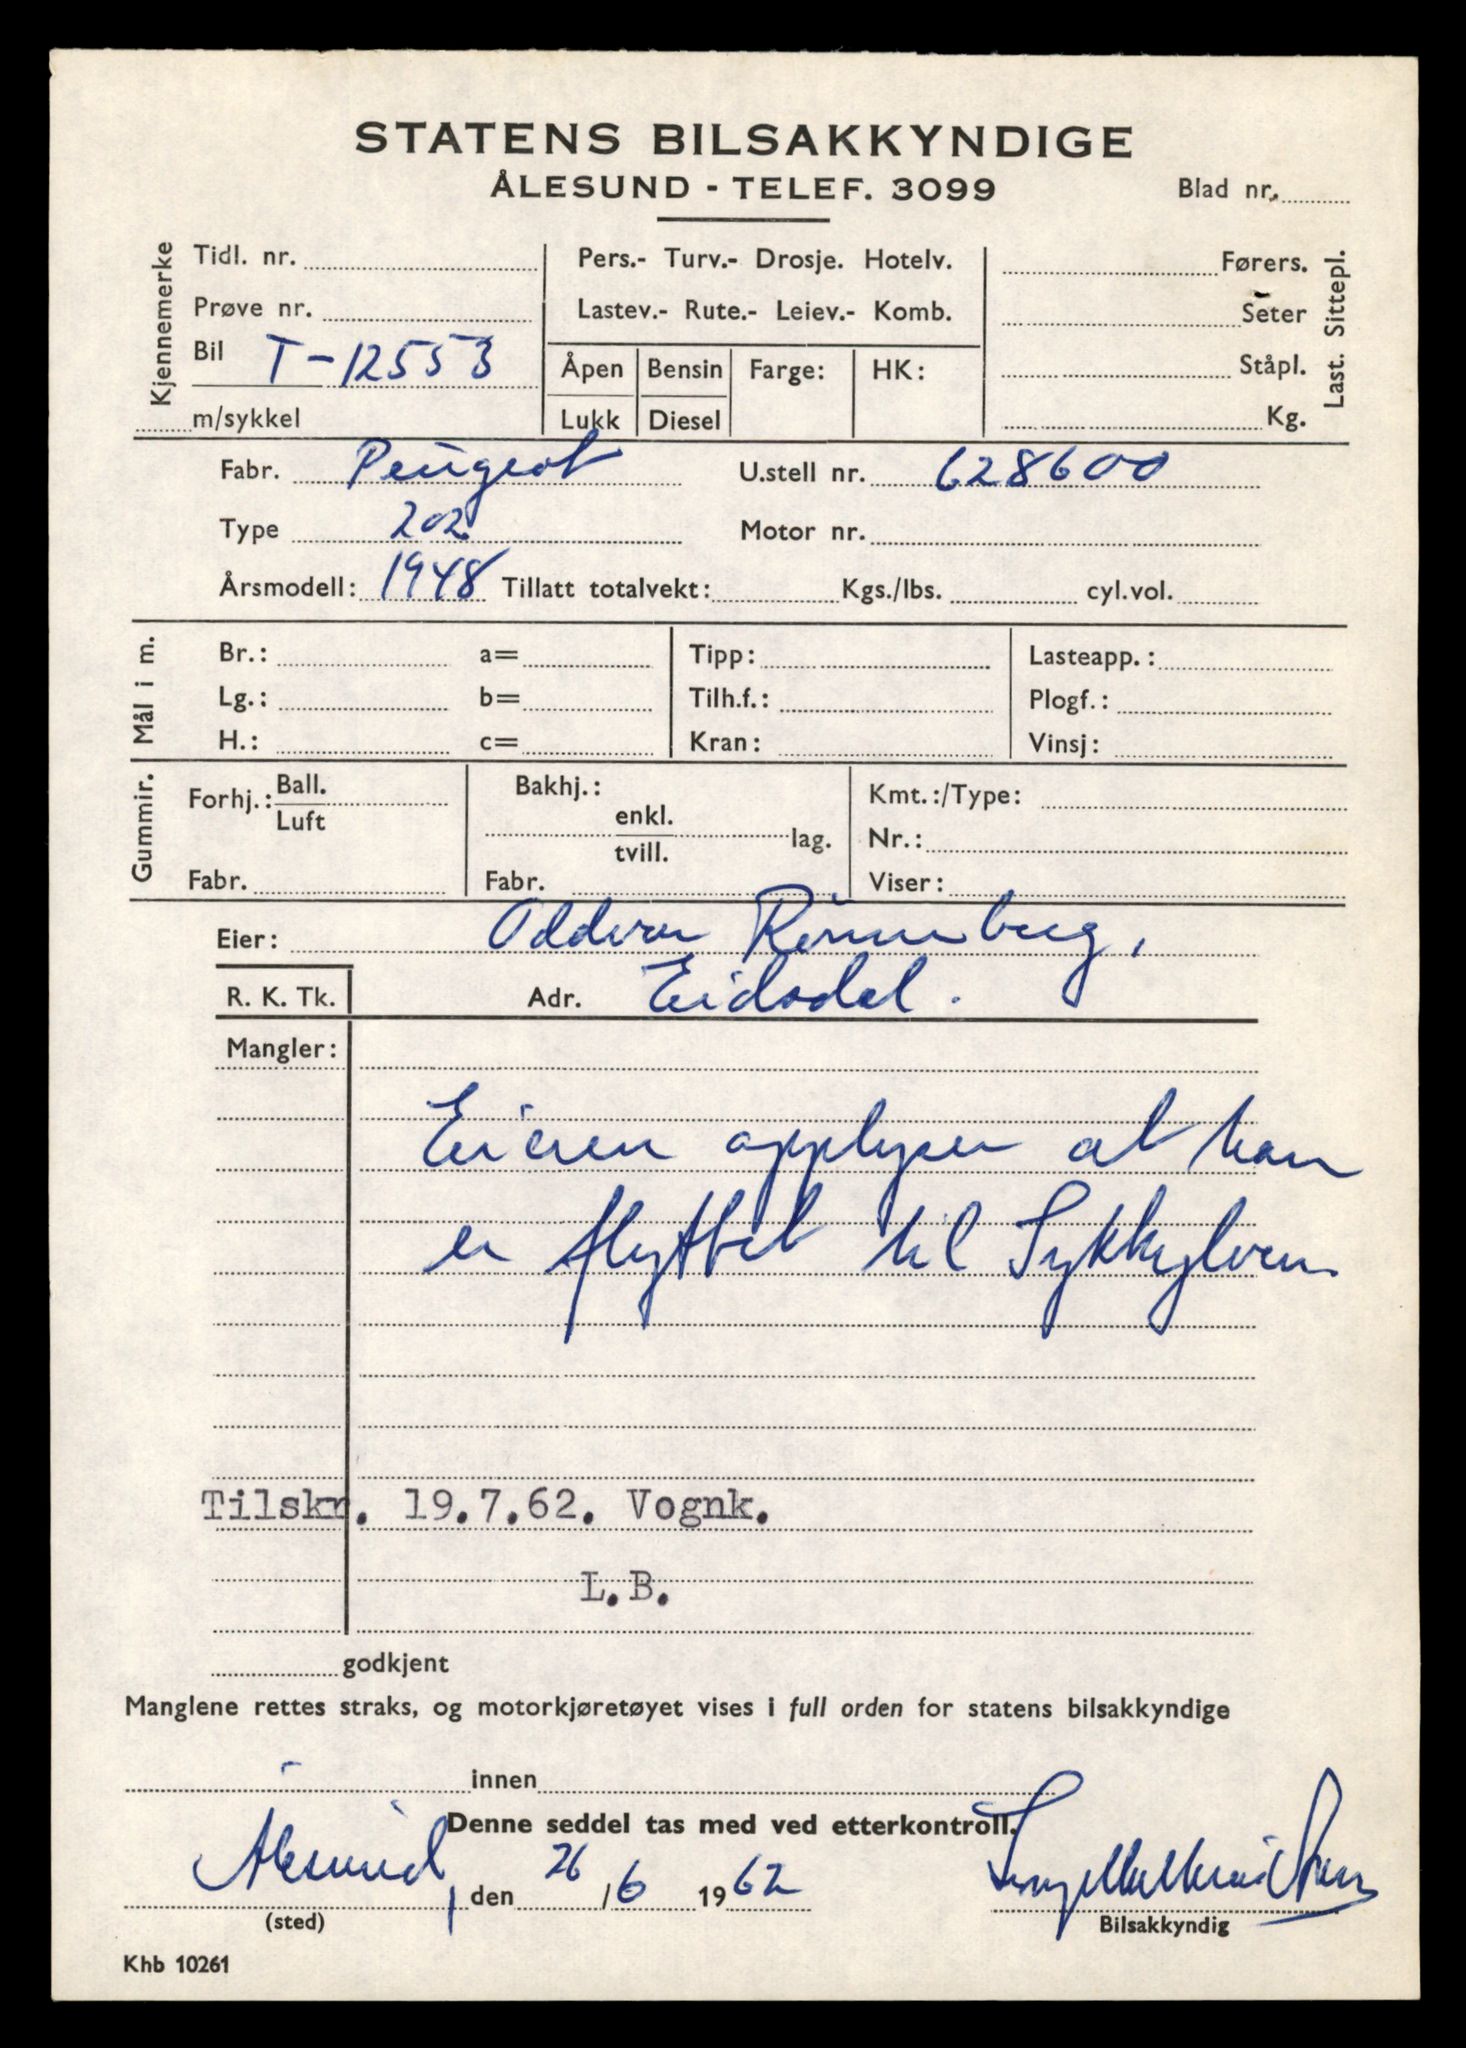 STATENS BILSAKKYNDIGE
ÅLESUND - TELEF. 3099
Blad nr.
Kjennemerke
Tidl. nr.
Prøve nr.
Bil T-12553
m/sykkel
Pers.- Turv.- Drosje. Hotelv.
Lastev.- Rute.- Leiev.- Komb.
Åpen Bensin Farge: HK:
Lukk Diesel
Førers.
Seter
Ståpl.
Kg.
Last. Sittepl.
Fabr. Peugeot U.stell nr. 628600
Type 202 Motor nr.
Årsmodell: 1948 Tillatt totalvekt: Kgs./lbs. cyl.vol.
Mål i m.
Br.: a= Tipp: Lasteapp.:
Lg.: b= Tilh.f.: Plogf.:
H.: c= Kran: Vinsj:
Gummir.
Forhj.: Ball. Luft
Fabr.
Bakhj.:
enkl.
tvill. lag.
Fabr.
Kmt.:/Type:
Nr.:
Viser:
Eier: Oddvar Rønneberg,
R. K. Tk. Adr. Eidsdal.
Mangler:
Eieren opplyser at han
er flyttet til Sykkylven
Tilskr. 19.7.62. Vognk.
L.B.
godkjent
Manglene rettes straks, og motorkjøretøyet vises i full orden for statens bilsakkyndige
innen
Denne seddel tas med ved etterkontroll.
Ålesund, den 26/6 1962
(sted)
Bilsakkyndig
Khb 10261